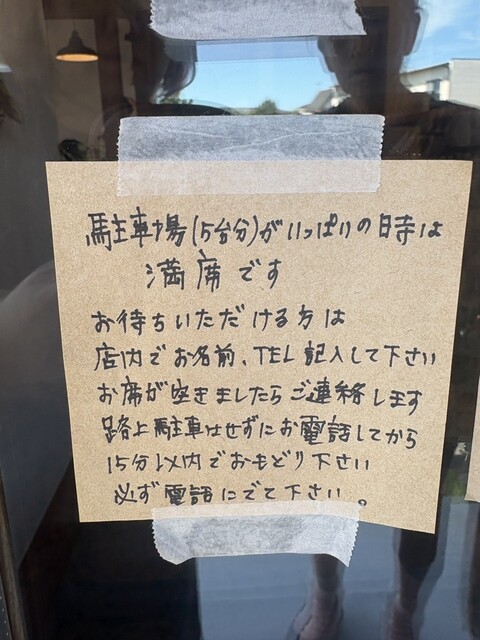 駐車場(5台分)がいっぱいの日時は
満席です
お待ちいただける方は
店内でお名前、TEL記入して下さい
お席が空きましたらご連絡します
路上駐車はせずにお電話してから
15分以内でおもどり下さい
必ず電話にでて下さい。